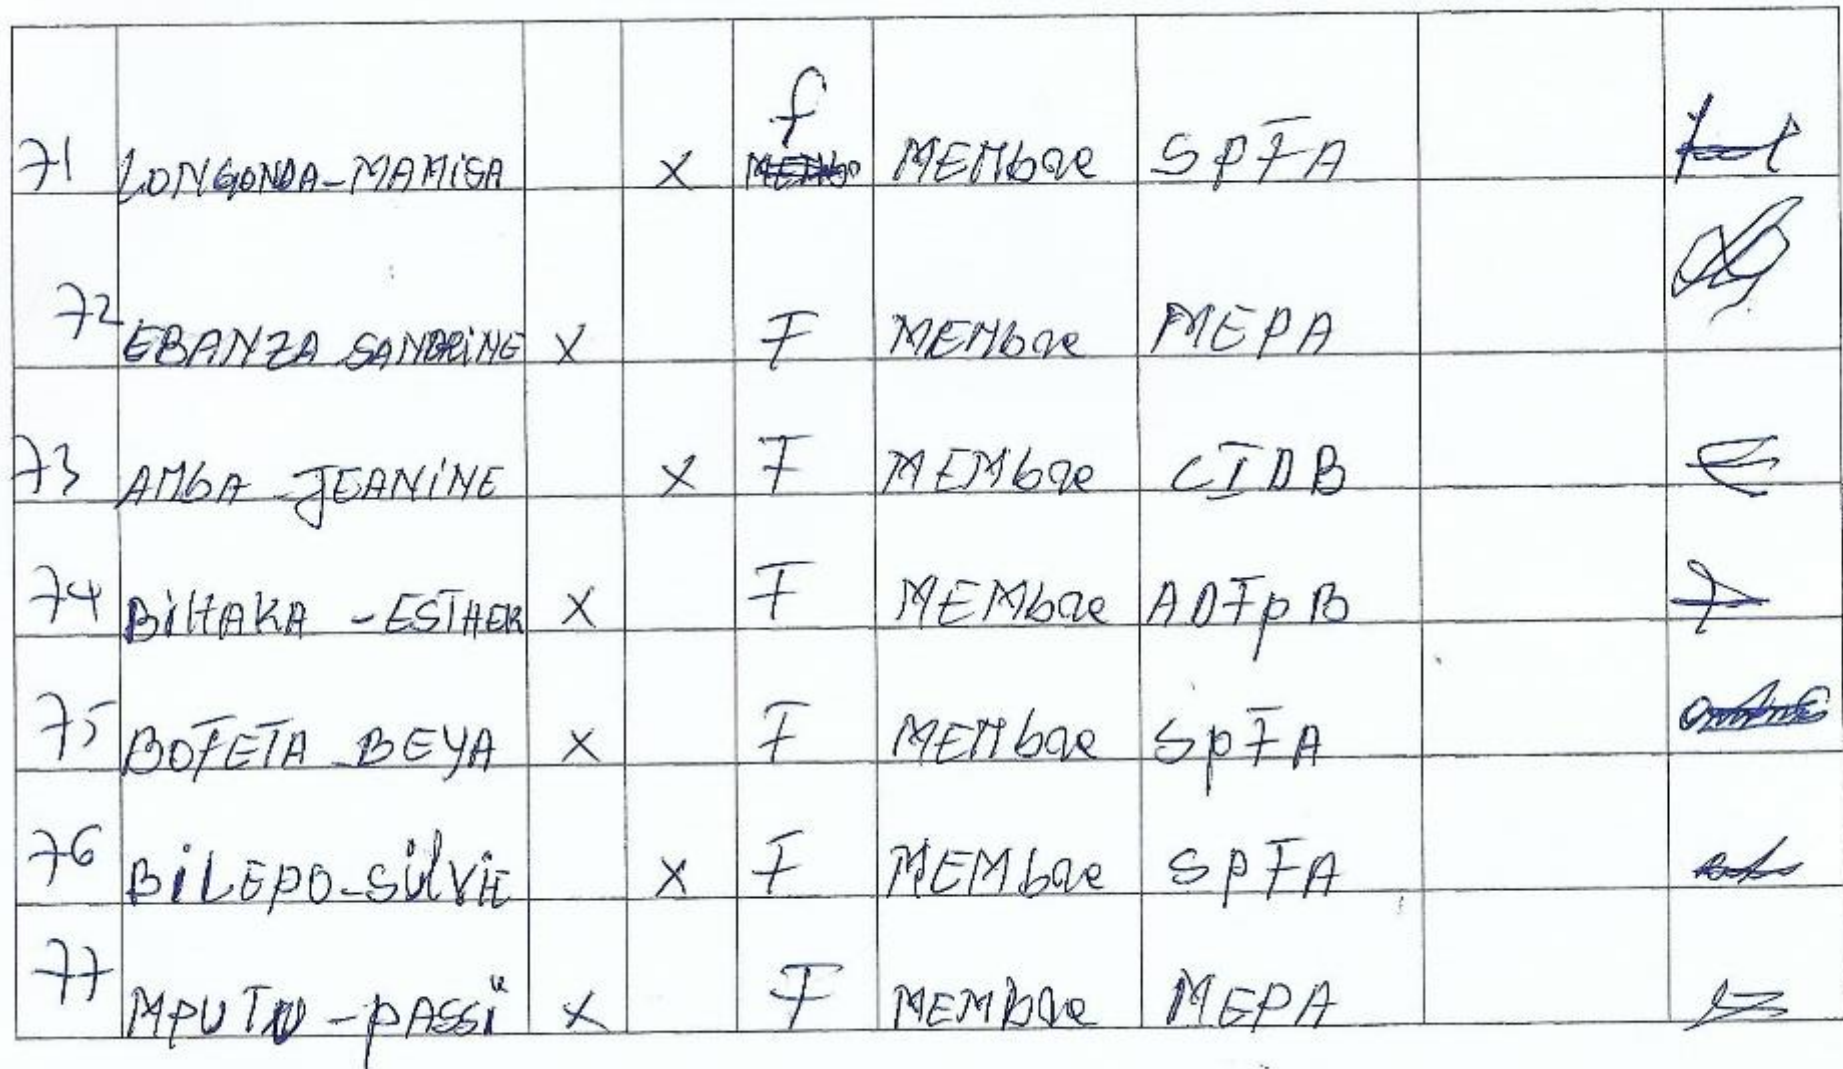 71 LONGONDA-MAMISA X f MEMbre SPFA
72 EBANZA SANDRINE X F MEMbre MEPA
73 AMbA JEANINE X F MEMbre CIDB
74 BiHAKA -ESTHER X F MEMbre ADFpB
75 BOFETA BEYA X F MEMbre SpFA
76 BiLEpO-SilViE X F MEMbre SPFA
77 MPUTU-pASSi X F MEMbre MEPA